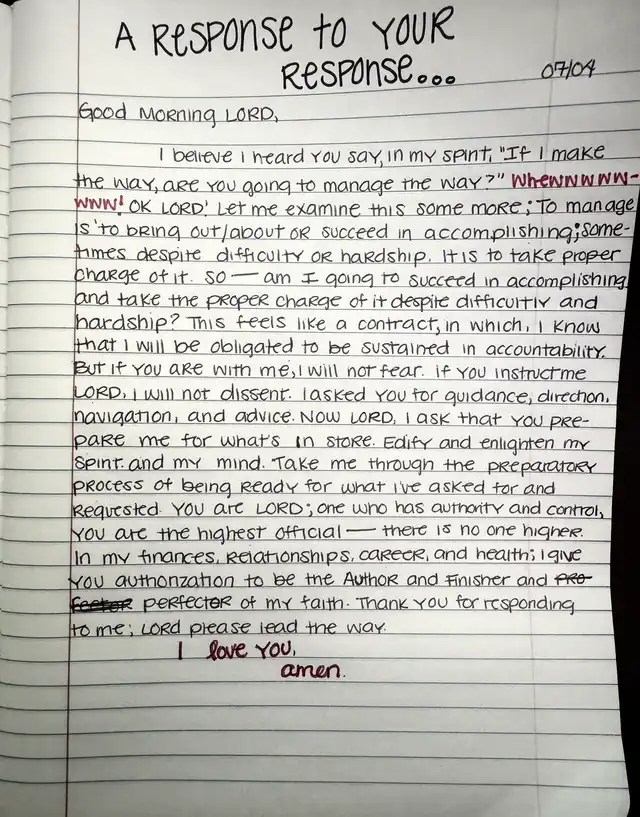 A RESPONSE TO YOUR
RESPONSE...
07/04
Good Morning LORD,
I believe I heard you say, in my spirit, "If I make
the way, are you going to manage the way?" Whewwwww-
www! OK LORD! Let me examine this some more; To manage
is to bring out/about or succeed in accomplishing; some-
times despite difficulty or hardship. It is to take proper
charge of it. So — am I going to succeed in accomplishing
and take the proper charge of it despite difficultly and
hardship? This feels like a contract, in which, I know
that I will be obligated to be sustained in accountability.
But if you are with me, I will not fear. If you instruct me
LORD, I will not dissent. I asked you for guidance, direction,
navigation, and advice. Now LORD, I ask that you pre-
pare me for what's in store. Edify and enlighten my
spirit and my mind. Take me through the preparatory
process of being ready for what I've asked for and
requested. You are LORD; one who has authority and control,
you are the highest official — there is no one higher.
In my finances, relationships, career, and health; I give
you authorization to be the Author and Finisher and pro-
fector perfector of my faith. Thank you for responding
to me; LORD please lead the way.
I love you,
amen.